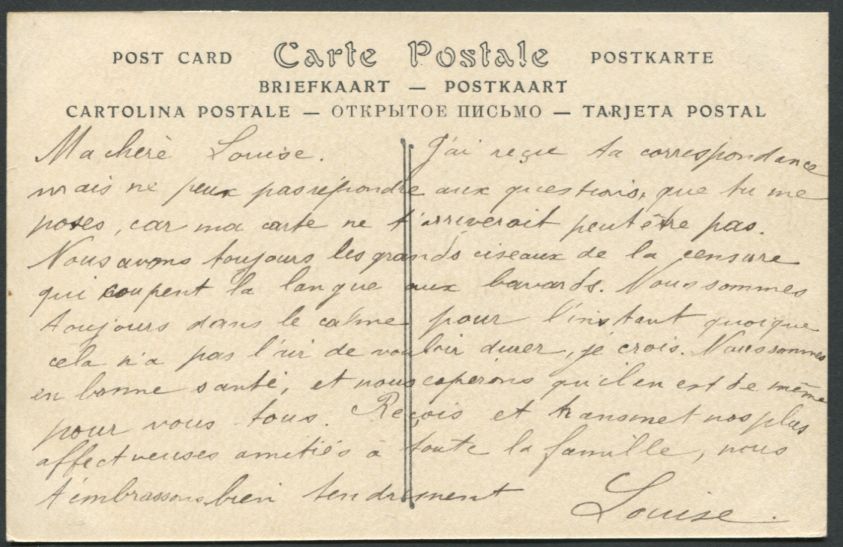 POST CARD Carte Postale POSTKARTE
BRIEFKAART — POSTKAART
CARTOLINA POSTALE — ОТКРЫТОЕ ПИСЬМО — TARJETA POSTAL
Ma chère Louise. J'ai reçue ta correspondance
mais ne peux pas répondre aux questions, que tu me
poses, car ma carte ne t'arriverait peut être pas.
Nous avons toujours les grands ciseaux de la censure
qui coupent la langue aux bavards. Nous sommes
toujours dans le calme pour l'instant quoique
cela n'a pas l'air de vouloir durer, je crois. Nous sommes
en bonne santé, et nous esperons qu'il en est de même
pour vous tous. Reçois et transmet nos plus
affectueuses amitiés à toute la famille, nous
t'embrassons bien tendrement Louise.